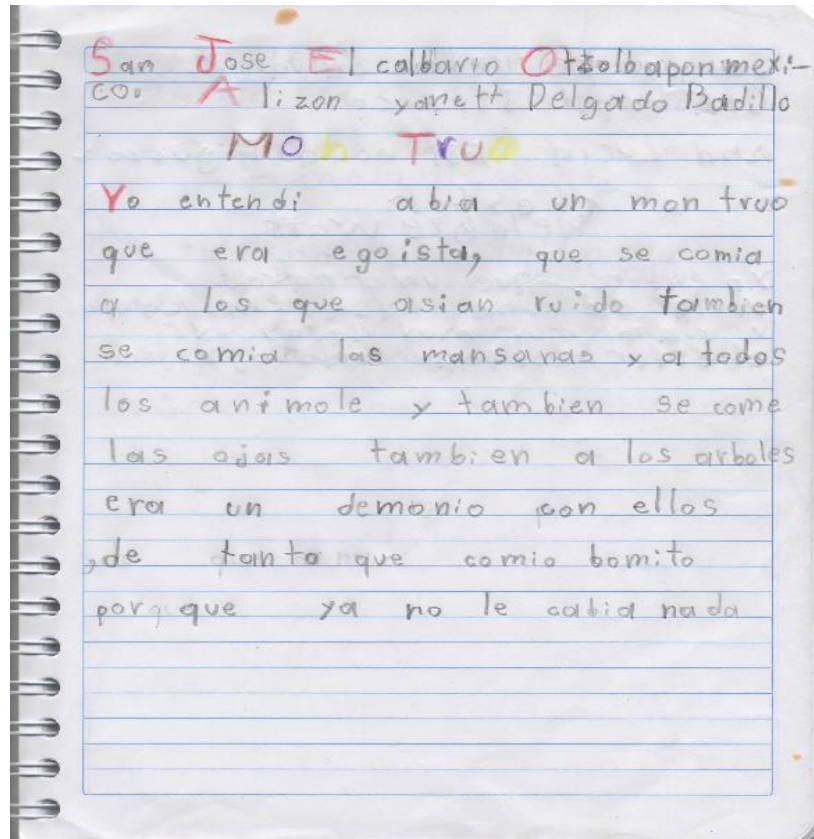 San Jose El calbario Otsolbapon mexi-
co. Alizon yanett Delgado Badillo
Mon Truo
Yo entendi abia un mon truo
que era egoista, que se comia
a los que asian ruido tambien
se comia las mansanas y a todos
los animole y tambien se come
las ojas tambien a los arboles
era un demonio con ellos
,de tanto que comio bomito
por que ya no le cabia nada